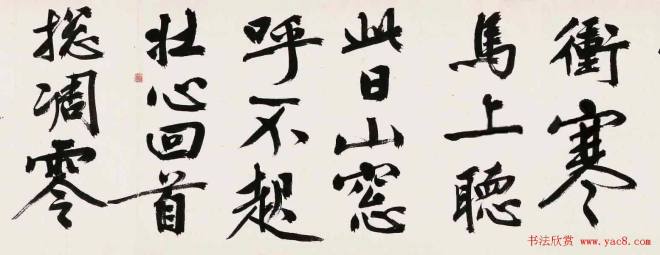 衝寒
馬上聽
此日山窓
呼不起
壮心回首
揔凋零
书法欣赏 www.yac8.com